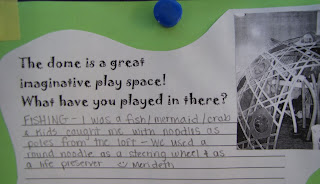 The dome is a great
imaginative play space!
What have you played in there?
FISHING - I was a fish/mermaid/crab
& kids caught me with noodles as
poles from the loft - We used a
round noodle as a steering wheel & as
a life preserver :) Merideth